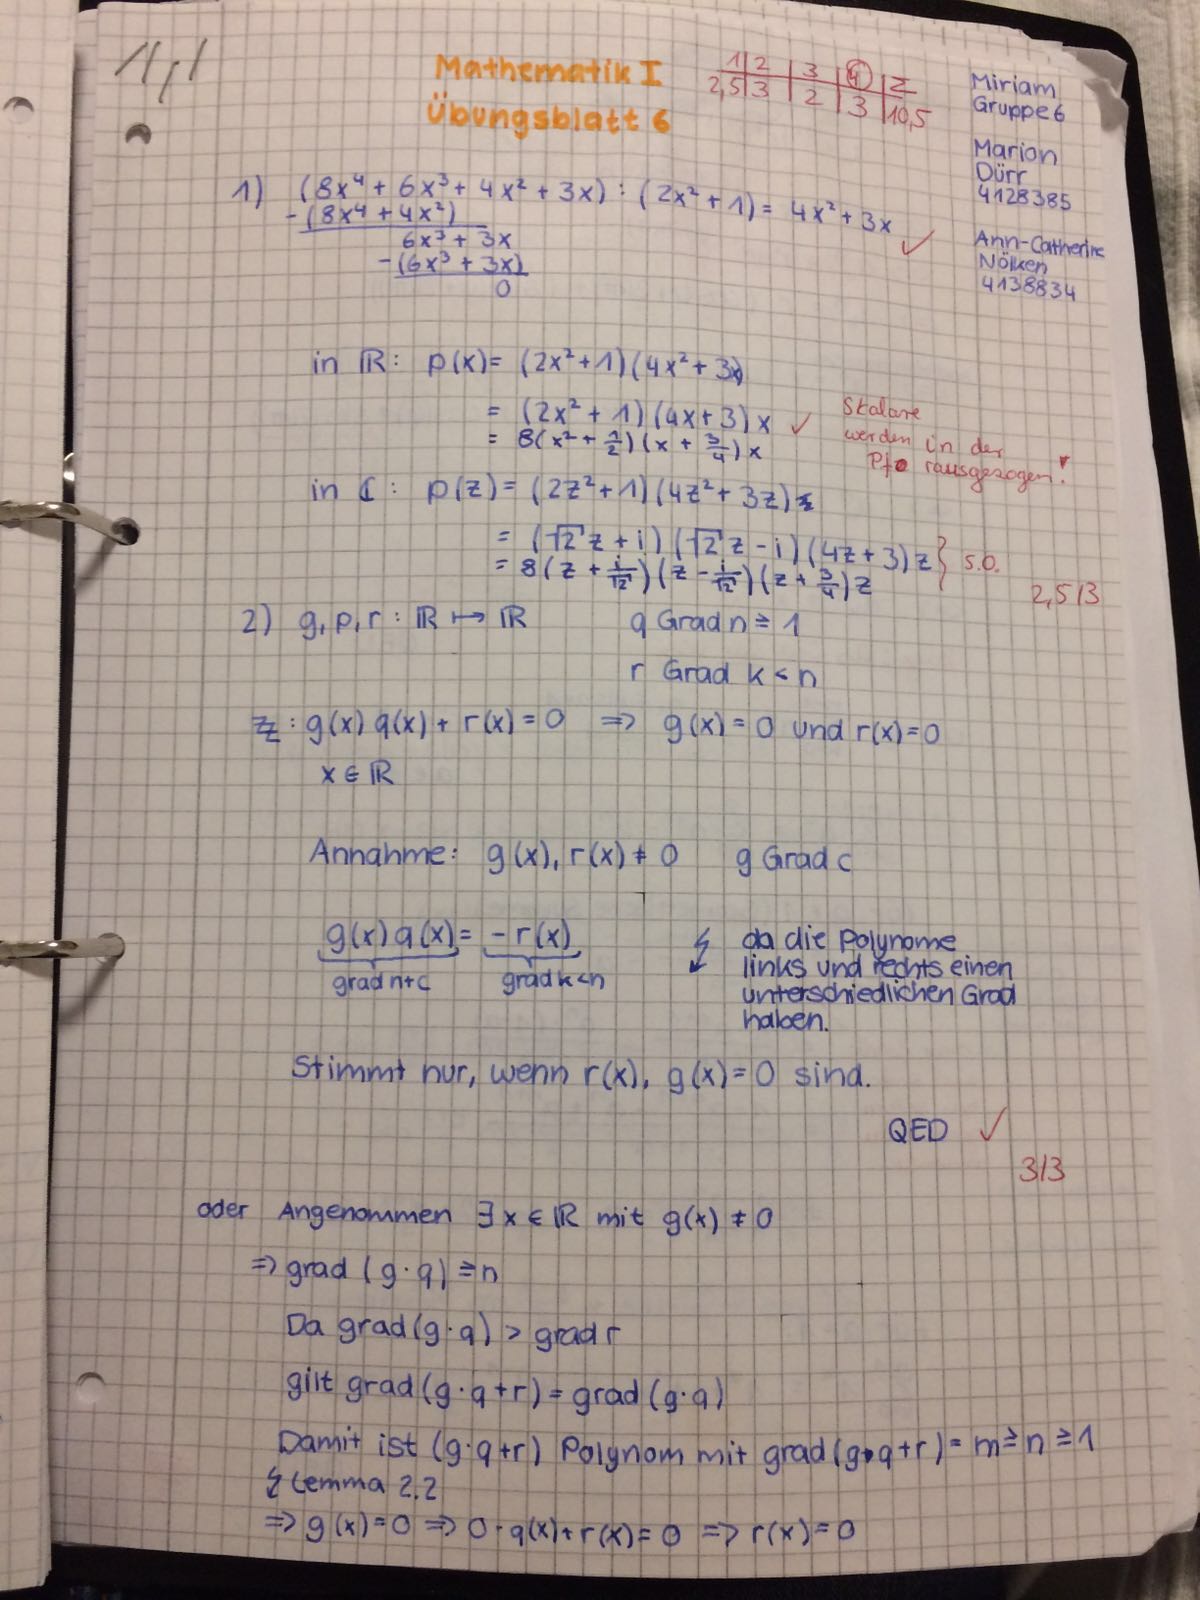 Mathematik I
Übungsblatt 6
1 | 2 | 3 | 4 | Σ
2,5 | 3 | 2 | 3 | 10,5
Miriam
Gruppe 6
Marion
Dürr
4128385
Ann-Catherine
Nölken
4138834
1) (8x⁴ + 6x³ + 4x² + 3x) : (2x² + 1) = 4x² + 3x ✓
-(8x⁴ + 4x²)
6x³ + 3x
-(6x³ + 3x)
0
in ℝ: p(x) = (2x² + 1)(4x² + 3x)
= (2x² + 1)(4x + 3)x ✓
= 8(x² + 1/2)(x + 3/4)x
Skalare
werden in der
rausgezogen!
in ℂ: p(z) = (2z² + 1)(4z² + 3z)
= (√2 z + i)(√2 z - i)(4z + 3)z
= 8(z + i/√2)(z - i/√2)(z + 3/4)z
} s.o.
2,5/3
2) g, p, r : ℝ ↦ ℝ q Grad n ≥ 1
r Grad k < n
ZZ: g(x) q(x) + r(x) = 0 ⇒ g(x) = 0 und r(x) = 0
x ∈ ℝ
Annahme: g(x), r(x) ≠ 0 g Grad c
g(x) q(x) = -r(x)
grad n+c grad k<n
↯ da die Polynome
links und rechts einen
unterschiedlichen Grad
haben.
Stimmt nur, wenn r(x), g(x) = 0 sind.
QED ✓
3/3
oder Angenommen ∃ x ∈ ℝ mit g(x) ≠ 0
⇒ grad (g · q) ≥ n
Da grad (g · q) > grad r
gilt grad (g · q + r) = grad (g · q)
Damit ist (g · q + r) Polynom mit grad (g · q + r) = m ≥ n ≥ 1
↯ Lemma 2.2
⇒ g(x) = 0 ⇒ 0 · q(x) + r(x) = 0 ⇒ r(x) = 0